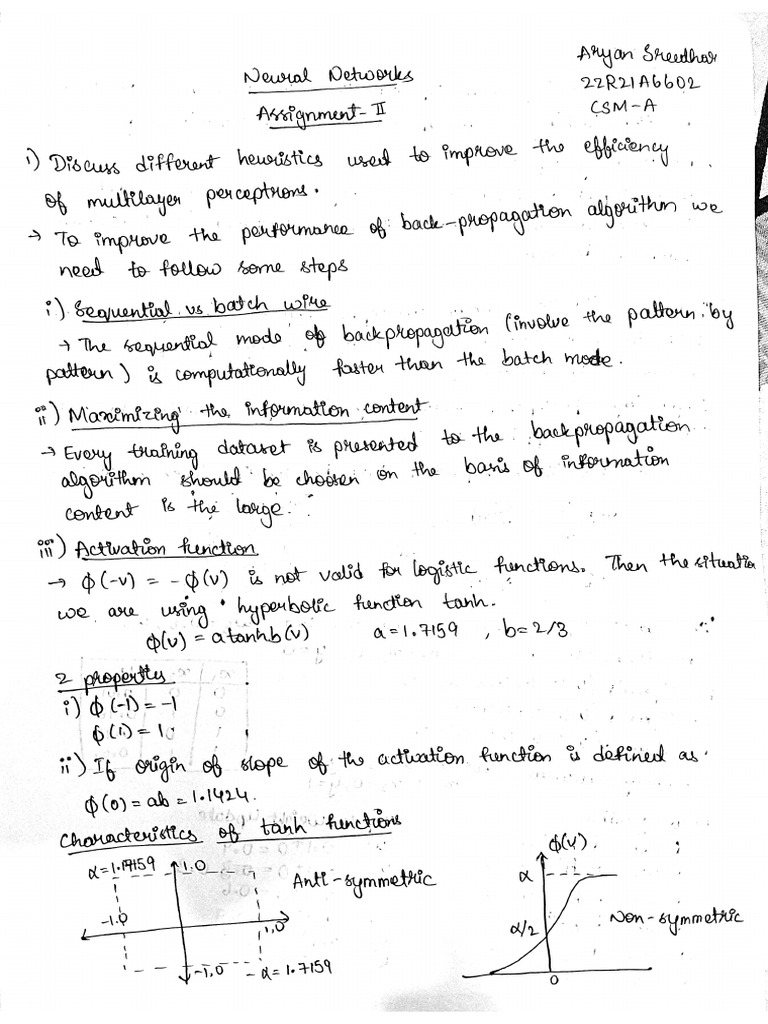 Neural Networks
Aryan Sreedhar
22R21A6602
Assignment-II
CSM-A
1) Discuss different heuristics used to improve the efficiency
of multilayer perceptrons.
→ To improve the performance of back-propagation algorithm we
need to follow some steps
i) Sequential vs batch wire
→ The sequential mode of backpropagation (involve the pattern by
pattern) is computationally faster than the batch mode.
ii) Maximizing the information content
→ Every training dataset is presented to the backpropagation
algorithm should be choosen on the basis of information
content is the large.
iii) Activation function
→ ϕ(-v) = -ϕ(v) is not valid for logistic functions. Then the situation
we are using hyperbolic function tanh.
ϕ(v) = a tanh b(v) a = 1.7159 , b = 2/3
2 properties
i) ϕ(-1) = -1
ϕ(1) = 1
ii) If origin of slope of the activation function is defined as
ϕ(0) = ab = 1.1424.
Characteristics of tanh functions
α = 1.7159
1.0
Anti-symmetric
-1.0
1.0
-1.0
-α = 1.7159
ϕ(v).
α
α/2
Non-symmetric
0